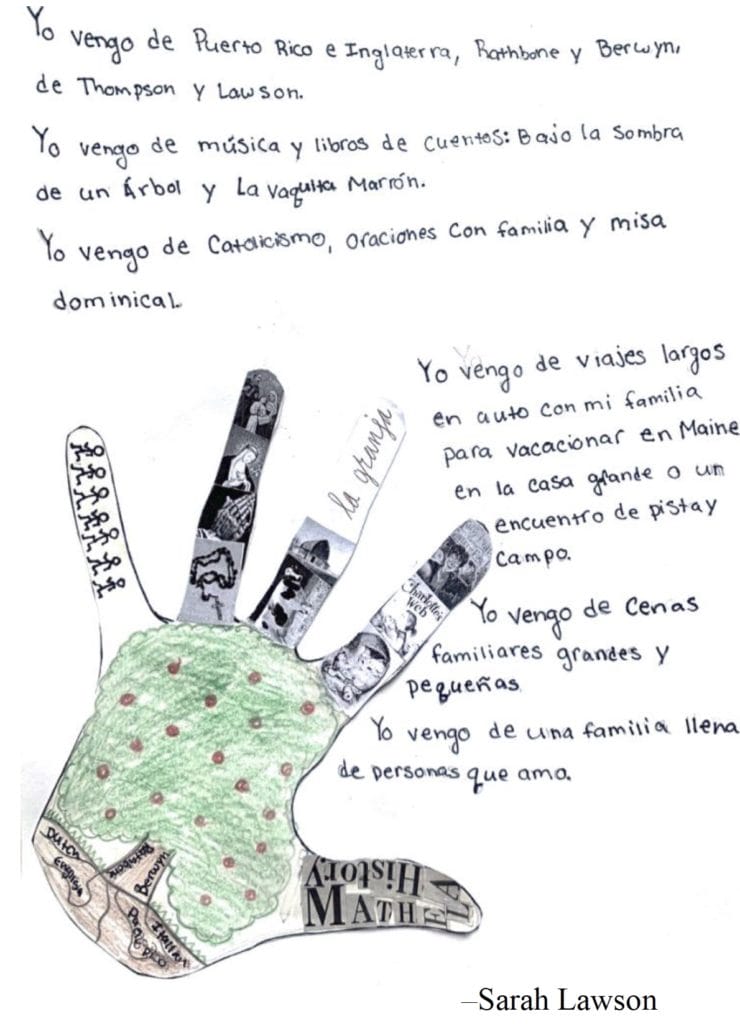 Yo vengo de Puerto Rico e Inglaterra, Rathbone y Berwyn,
de Thompson y Lawson.
Yo vengo de música y libros de cuentos: Bajo la Sombra
de un Árbol y La Vaquita Marrón.
Yo vengo de Catolicismo, oraciones con familia y misa
dominical
Yo vengo de viajes largos
en auto con mi familia
para vacacionar en Maine
en la casa grande o un
encuentro de pista y
campo.
Yo vengo de cenas
familiares grandes y
pequeñas.
Yo vengo de una familia llena
de personas que amo.
la granja
Charlotte's
Web
Dutch
English
Rathbone
Berwyn
Puerto Rico
Italian
History
MATH
ELA
–Sarah Lawson